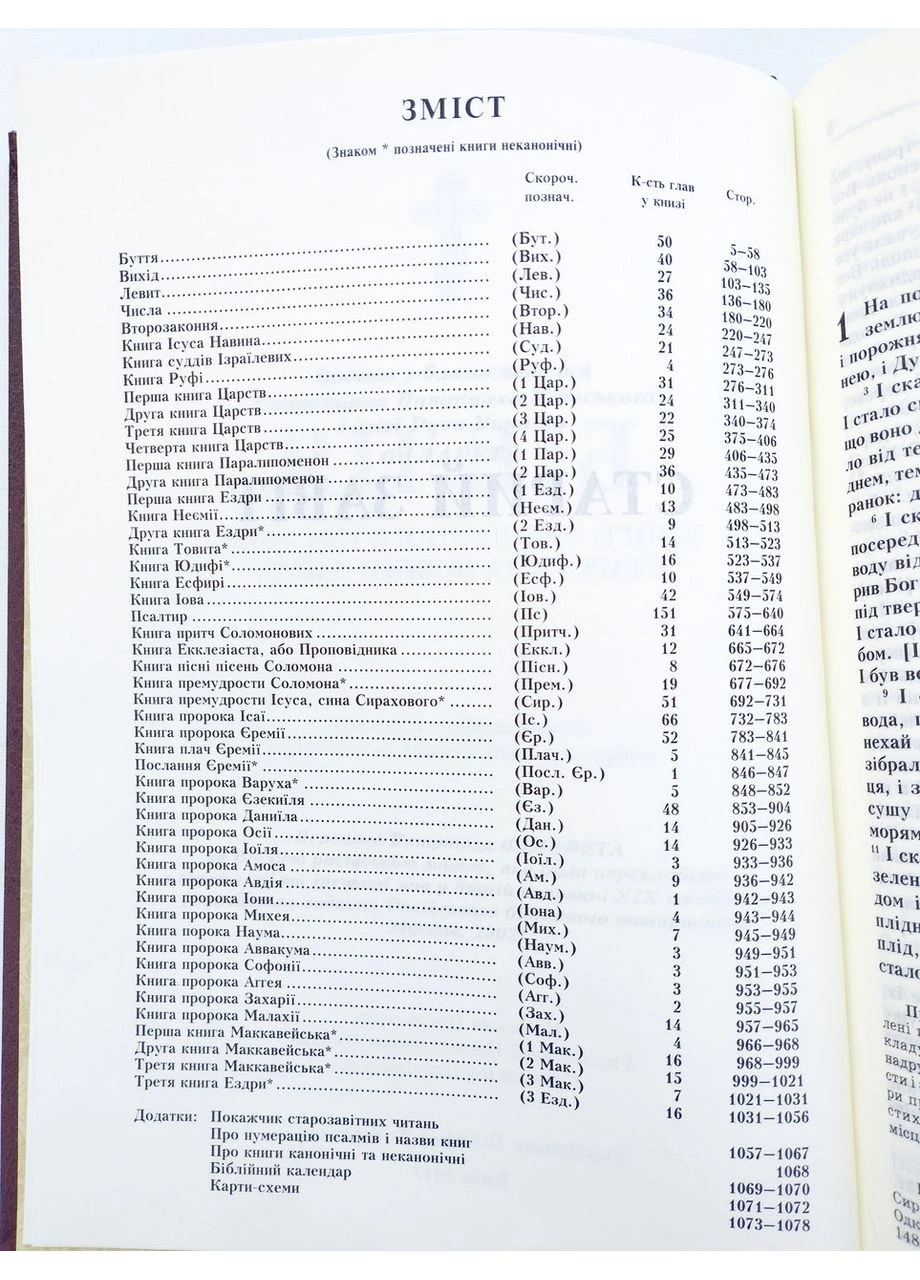 ЗМІСТ
(Знаком * позначені книги неканонічні)
Скороч. познач. К-сть глав у книзі Стор.
Буття (Бут.) 50 5–58
Вихід (Вих.) 40 58–103
Левит (Лев.) 27 103–135
Числа (Чис.) 36 136–180
Второзаконня (Втор.) 34 180–220
Книга Ісуса Навина (Нав.) 24 220–247
Книга суддів Ізраїлевих (Суд.) 21 247–273
Книга Руфі (Руф.) 4 273–276
Перша книга Царств (1 Цар.) 31 276–311
Друга книга Царств (2 Цар.) 24 311–340
Третя книга Царств (3 Цар.) 22 340–374
Четверта книга Царств (4 Цар.) 25 375–406
Перша книга Паралипоменон (1 Пар.) 29 406–435
Друга книга Паралипоменон (2 Пар.) 36 435–473
Перша книга Ездри (1 Езд.) 10 473–483
Книга Неємії (Неєм.) 13 483–498
Друга книга Ездри* (2 Езд.) 9 498–513
Книга Товита* (Тов.) 14 513–523
Книга Юдифі* (Юдиф.) 16 523–537
Книга Есфирі (Есф.) 10 537–549
Книга Іова (Іов.) 42 549–574
Псалтир (Пс) 151 575–640
Книга притч Соломонових (Притч.) 31 641–664
Книга Екклезіаста, або Проповідника (Еккл.) 12 665–672
Книга пісні пісень Соломона (Пісн.) 8 672–676
Книга премудрости Соломона* (Прем.) 19 677–692
Книга премудрости Ісуса, сина Сирахового* (Сир.) 51 692–731
Книга пророка Ісаї (Іс.) 66 732–783
Книга пророка Єремії (Єр.) 52 783–841
Книга плач Єремії (Плач.) 5 841–845
Послання Єремії* (Посл. Єр.) 1 846–847
Книга пророка Варуха* (Вар.) 5 848–852
Книга пророка Єзекиїля (Єз.) 48 853–904
Книга пророка Даниїла (Дан.) 14 905–926
Книга пророка Осії (Ос.) 14 926–933
Книга пророка Іоїля (Іоїл.) 3 933–936
Книга пророка Амоса (Ам.) 9 936–942
Книга пророка Авдія (Авд.) 1 942–943
Книга пророка Іони (Іона.) 4 943–944
Книга пророка Михея (Мих.) 7 945–949
Книга порока Наума (Наум.) 3 949–951
Книга пророка Аввакума (Авв.) 3 951–953
Книга пророка Софонії (Соф.) 3 953–955
Книга пророка Аггея (Агг.) 2 955–957
Книга пророка Захарії (Зах.) 14 957–965
Книга пророка Малахії (Мал.) 4 966–968
Перша книга Маккавейська* (1 Мак.) 16 968–999
Друга книга Маккавейська* (2 Мак.) 15 999–1021
Третя книга Маккавейська* (3 Мак.) 7 1021–1031
Третя книга Ездри* (3 Езд.) 16 1031–1056
Додатки: Покажчик старозавітних читань 1057–1067
Про нумерацію псалмів і назви книг 1068
Про книги канонічні та неканонічні 1069–1070
Біблійний календар 1071–1072
Карти-схеми 1073–1078
1 На по
землю
і порожня
нею, і Ду
3 І ска
І стало с
що воно
ло від те
днем, тем
ранок: д
6 І ск
посеред
воду від
рив Бог
під твер
І стало
бом. [І
І був ве
9 І
вода,
нехай
зібрал
ця, і з
сушу
морям
11 І ск
зелен
дом і
плідн
плід,
стало